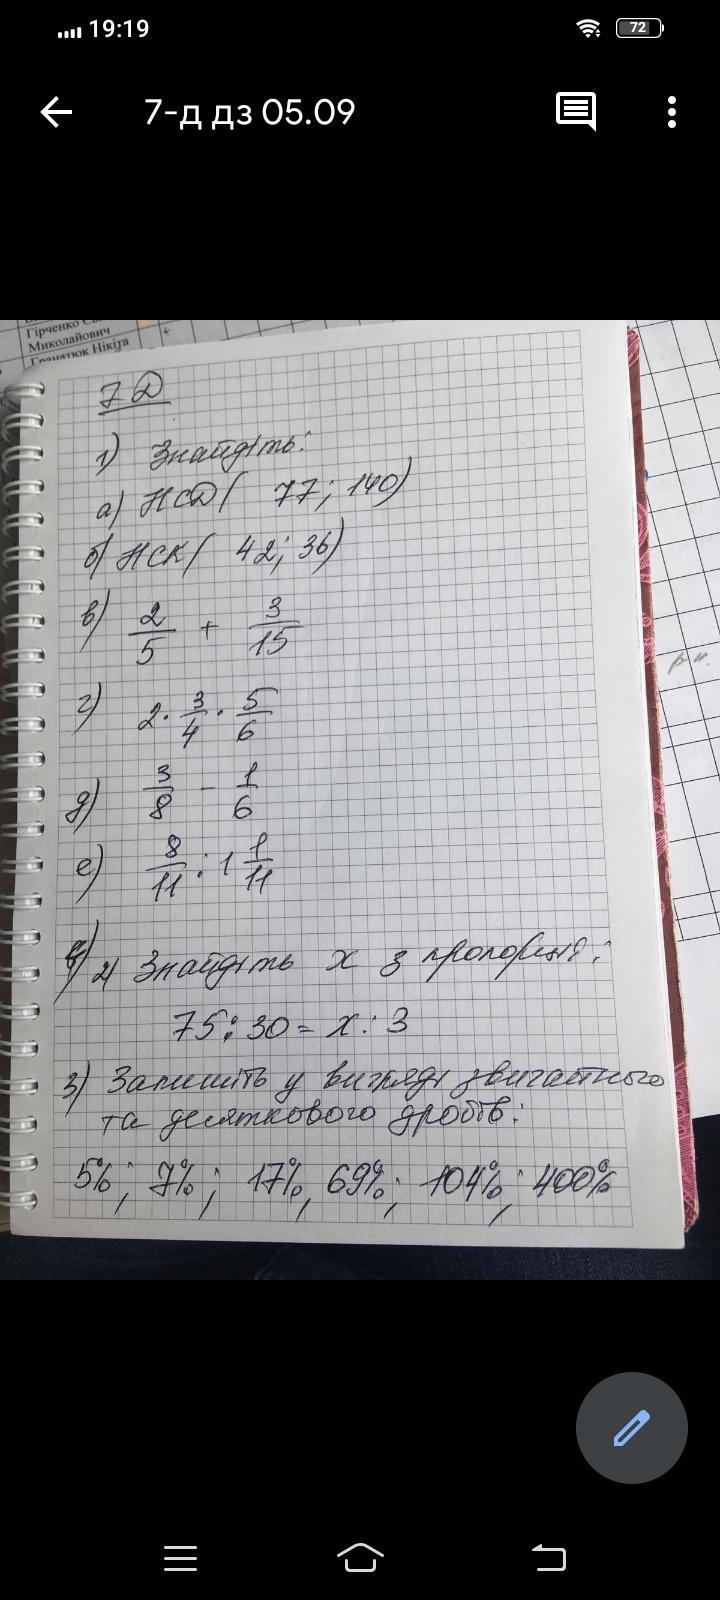 19:19
72
7-д дз 05.09
Гірченко
Миколайович
Нікіта
7Д
1) Знайдіть:
а) НСД( 77; 140)
б) НСК( 42; 36)
в) 2/5 + 3/15
г) 2 · 3/4 · 5/6
д) 3/8 - 1/6
е) 8/11 : 1 1/11
2) Знайдіть x з пропорції:
75 : 30 = x : 3
3) Запишіть у вигляді звичайного
та десяткового дробів:
5%; 7%; 17%, 69%; 104%; 400%